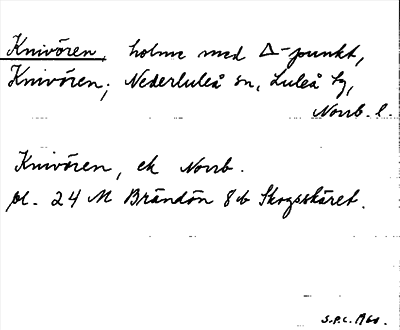 Knivören, holme med △-punkt,
Knivören; Nederluleå sn, Luleå tg,
Norrb. l.
Knivören, ek Norrb.
bl. 24 M Brändön 8b Skogsskäret.
S.P.C. 1960.